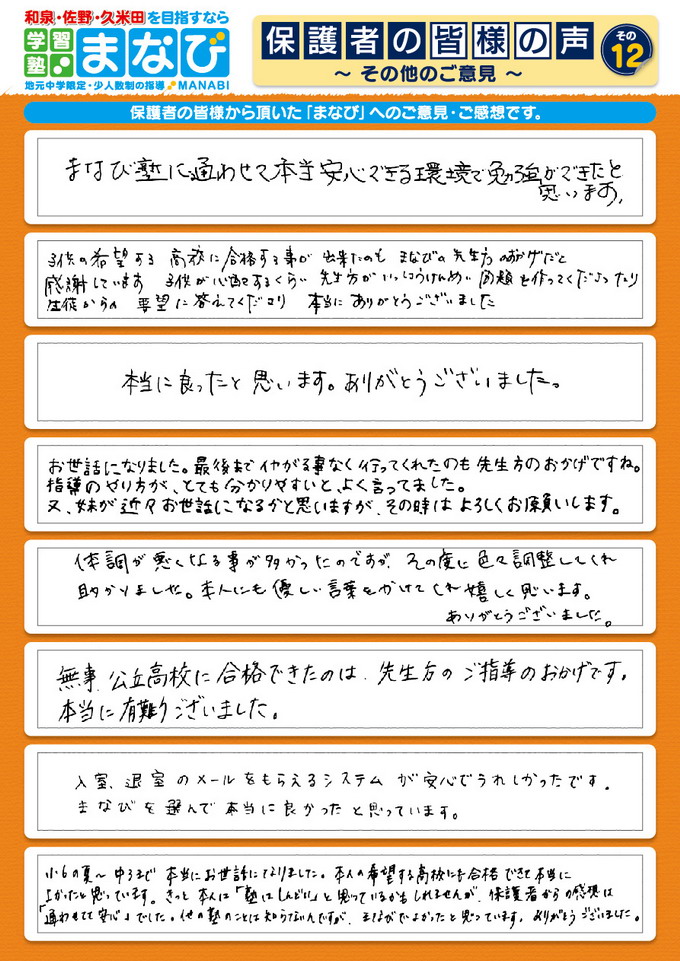 和泉・佐野・久米田を目指すなら
学習塾 まなび
地元中学限定・少人数制の指導 MANABI
保護者の皆様の声
その12
～ その他のご意見 ～
保護者の皆様から頂いた「まなび」へのご意見・ご感想です。
まなび塾に通わせて本当安心できる環境で勉強ができたと
思います。
子供の希望する 高校に合格する事が 出来たのも まなびの先生方のおかげだと
感謝しています 子供が心配するくらい 先生方がいっしょうけんめい 問題を作ってくださったり
生徒からの 要望に答えてくださり 本当にありがとうございました
本当に良ったと思います。ありがとうございました。
お世話になりました。最後までイヤがる事なく行ってくれたのも先生方のおかげですね。
指導のやり方が、とても分かりやすいと、よく言ってました。
又、妹が近々お世話になるかと思いますが、その時はよろしくお願いします。
体調が悪くなる事が多かったのですが、その度に色々調整してくれ
助かりました。本人にも優しい言葉をかけてくれ嬉しく思います。
ありがとうございました。
無事、公立高校に合格できたのは、先生方のご指導のおかげです。
本当に有難うございました。
入室、退室のメールをもらえるシステムが安心でうれしかったです。
まなびを選んで本当に良かったと思っています。
小6の夏～中3まで 本当にお世話になりました。本人の希望する高校にも合格できて本当に
よかったと思っています。きっと本人は「塾はしんどい」と思っているかもしれませんが、保護者からの感想は
「通わせてて安心」でした。他の塾のことは知らないんですが、まなびでよかったと思っています。ありがとうございました。